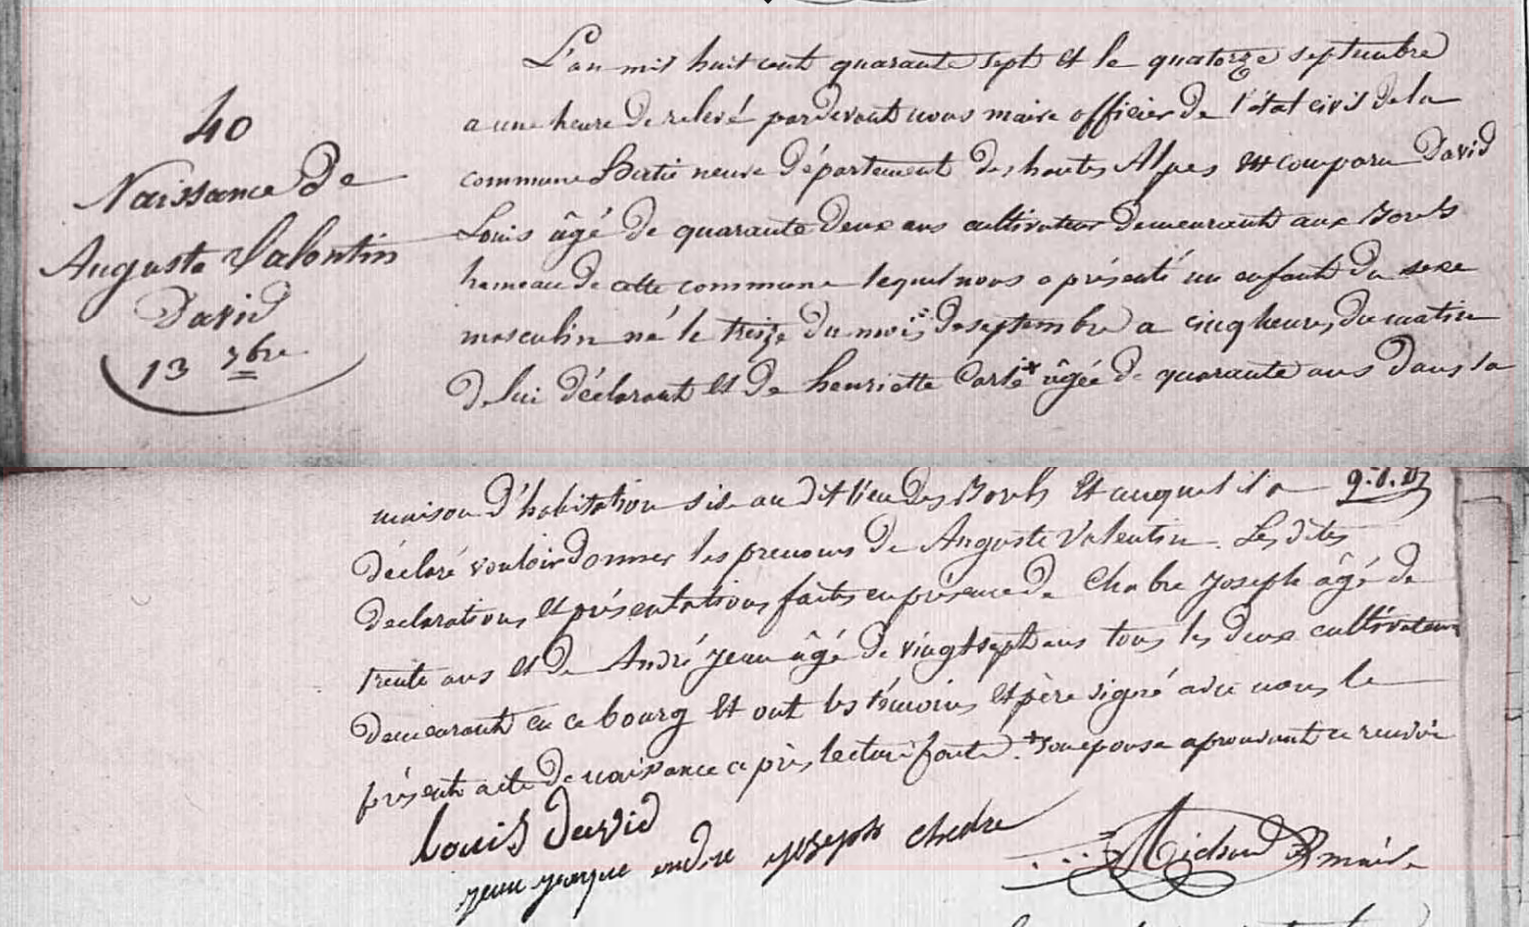 40
Naissance de
Auguste Valentin
David
13 7bre
L'an mil huit cent quarante sept et le quatorze septembre
a une heure de relevé pardevant nous maire officier de l'état civil de la
commune Batie neuve département des hautes Alpes est comparu David
Louis âgé de quarante deux ans cultivateur demeurant aux Borels
hameau de cette commune lequel nous a présenté un enfant du sexe
masculin né le treize du mois de septembre a cinq heures du matin
de lui déclarant et de henriette Carle + âgée de quarante ans dans la
maison d'habitation sise au dit lieu des Borels et auquel il a
déclaré vouloir donner les prenoms de Auguste Valentin. Les dites
declarations et présentations faites en présence de Chabre Joseph âgé de
trente ans et de André Jean âgé de vingt sept ans tous les deux cultivateurs
demeurant en ce bourg et ont les témoins et père signé avec nous le
présent acte de naissance après lecture faite. + son epouse aprouvant ce renvoi
Louis David
jean jacque andre joseph chabre
Michaud maire